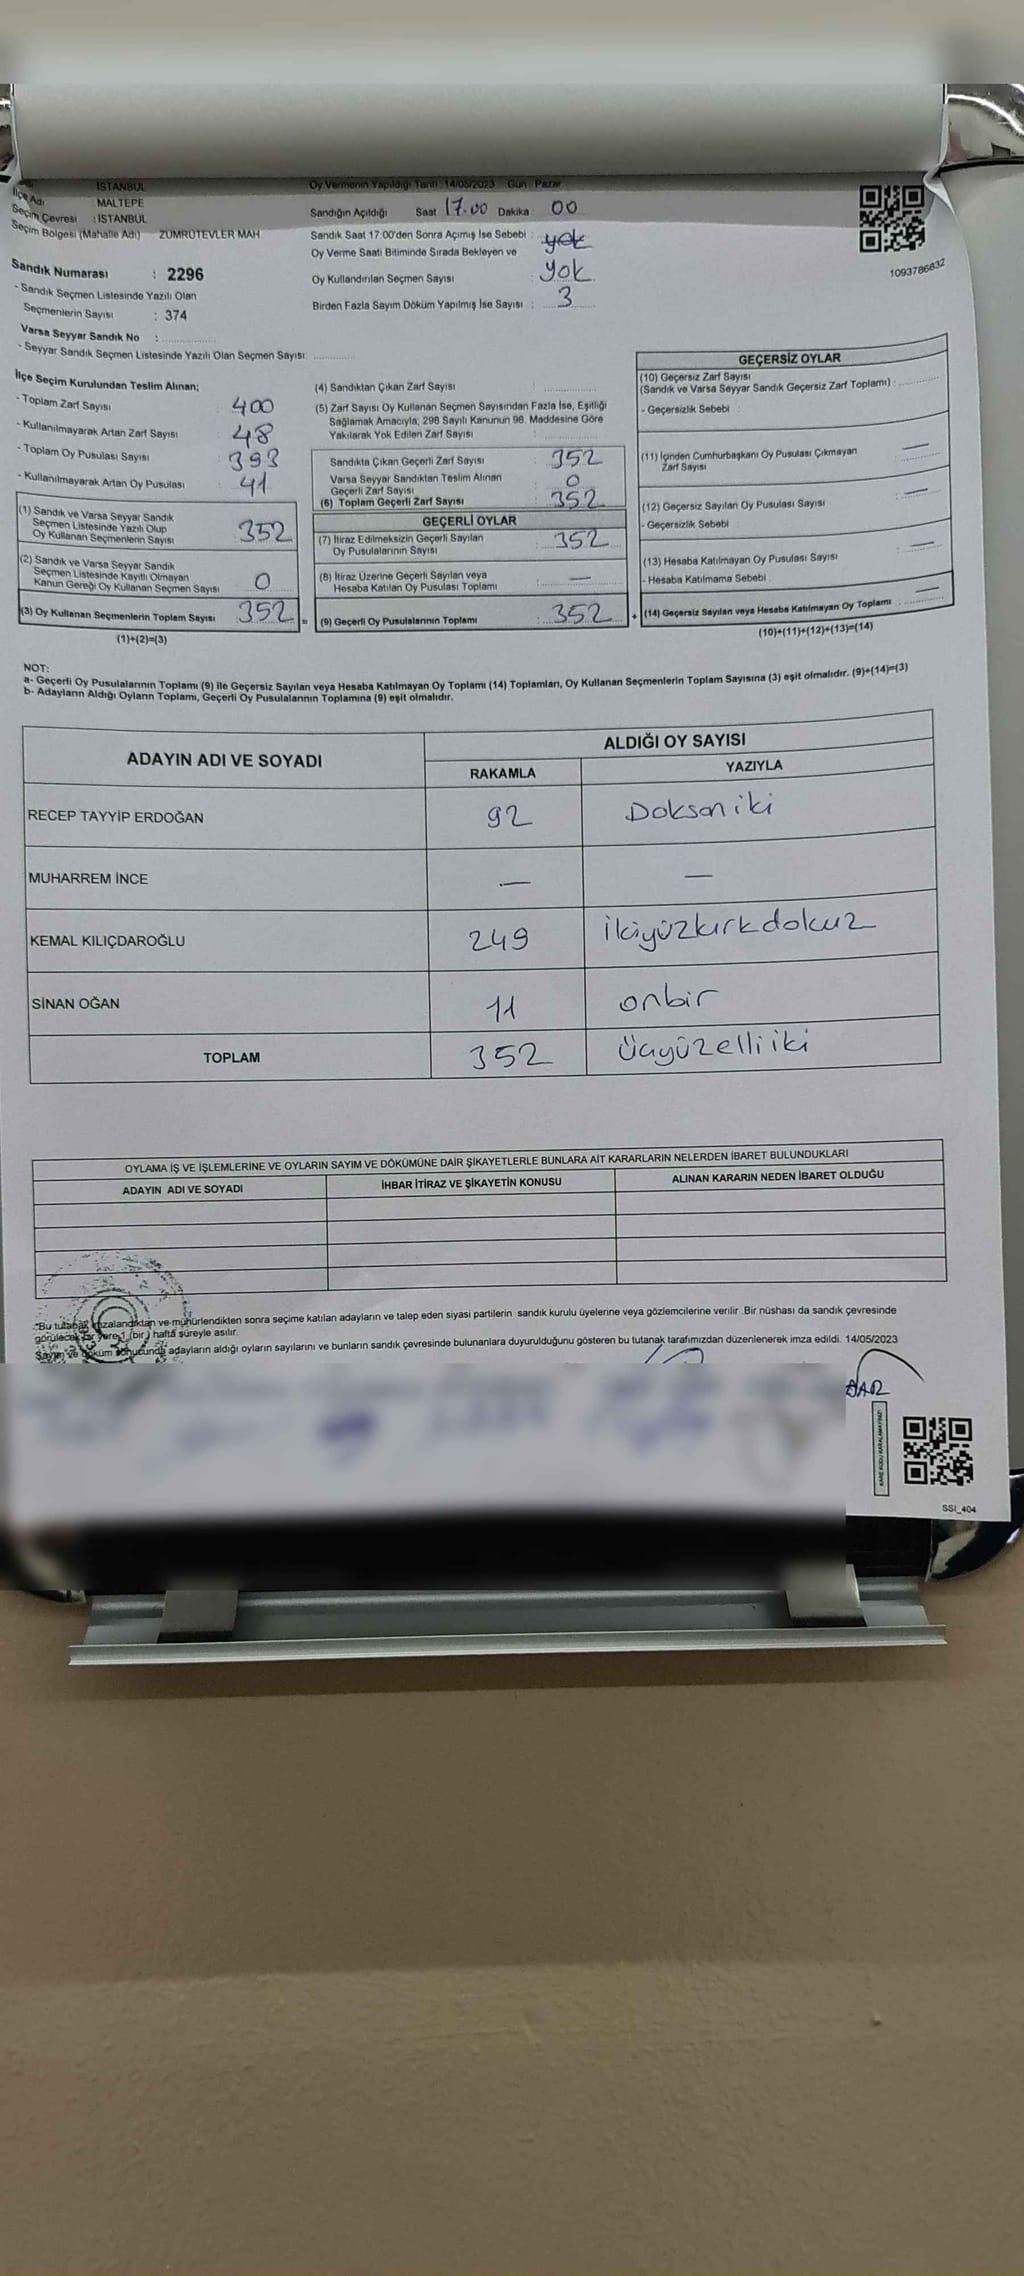 İSTANBUL
İlçe Adı MALTEPE
Seçim Çevresi : İSTANBUL
Seçim Bölgesi (Mahalle Adı) ZÜMRÜTEVLER MAH.
Sandık Numarası : 2296
- Sandık Seçmen Listesinde Yazılı Olan
Seçmenlerin Sayısı : 374
Varsa Seyyar Sandık No :
- Seyyar Sandık Seçmen Listesinde Yazılı Olan Seçmen Sayısı:
Oy Vermenin Yapıldığı Tarih : 14/05/2023 Gün : Pazar
Sandığın Açıldığı Saat 17.00 Dakika 00
Sandık Saat 17:00'den Sonra Açılmış İse Sebebi : yok
Oy Verme Saati Bitiminde Sırada Bekleyen ve
Oy Kullandırılan Seçmen Sayısı yok
Birden Fazla Sayım Döküm Yapılmış İse Sayısı : 3
1093786832
İlçe Seçim Kurulundan Teslim Alınan;
- Toplam Zarf Sayısı : 400
- Kullanılmayarak Artan Zarf Sayısı : 48
- Toplam Oy Pusulası Sayısı : 393
- Kullanılmayarak Artan Oy Pusulası : 41
(1) Sandık ve Varsa Seyyar Sandık
Seçmen Listesinde Yazılı Olup
Oy Kullanan Seçmenlerin Sayısı : 352
(2) Sandık ve Varsa Seyyar Sandık
Seçmen Listesinde Kayıtlı Olmayan
Kanun Gereği Oy Kullanan Seçmen Sayısı 0
(3) Oy Kullanan Seçmenlerin Toplam Sayısı 352 =
(1)+(2)=(3)
(4) Sandıktan Çıkan Zarf Sayısı :
(5) Zarf Sayısı Oy Kullanan Seçmen Sayısından Fazla İse, Eşitliği
Sağlamak Amacıyla, 298 Sayılı Kanunun 98. Maddesine Göre
Yakılarak Yok Edilen Zarf Sayısı :
Sandıkta Çıkan Geçerli Zarf Sayısı : 352
Varsa Seyyar Sandıktan Teslim Alınan
Geçerli Zarf Sayısı : 0
(6) Toplam Geçerli Zarf Sayısı : 352
GEÇERLİ OYLAR
(7) İtiraz Edilmeksizin Geçerli Sayılan
Oy Pusulalarının Sayısı : 352
(8) İtiraz Üzerine Geçerli Sayılan veya
Hesaba Katılan Oy Pusulası Toplamı : —
(9) Geçerli Oy Pusulalarının Toplamı : 352 +
GEÇERSİZ OYLAR
(10) Geçersiz Zarf Sayısı
(Sandık ve Varsa Seyyar Sandık Geçersiz Zarf Toplamı) :
- Geçersizlik Sebebi :
(11) İçinden Cumhurbaşkanı Oy Pusulası Çıkmayan
Zarf Sayısı —
(12) Geçersiz Sayılan Oy Pusulası Sayısı —
- Geçersizlik Sebebi
(13) Hesaba Katılmayan Oy Pusulası Sayısı —
- Hesaba Katılmama Sebebi
(14) Geçersiz Sayılan veya Hesaba Katılmayan Oy Toplamı —
(10)+(11)+(12)+(13)=(14)
NOT:
a- Geçerli Oy Pusulalarının Toplamı (9) ile Geçersiz Sayılan veya Hesaba Katılmayan Oy Toplamı (14) Toplamları, Oy Kullanan Seçmenlerin Toplam Sayısına (3) eşit olmalıdır. (9)+(14)=(3)
b- Adayların Aldığı Oyların Toplamı, Geçerli Oy Pusulalarının Toplamına (9) eşit olmalıdır.
ADAYIN ADI VE SOYADI ALDIĞI OY SAYISI
RAKAMLA YAZIYLA
RECEP TAYYİP ERDOĞAN 92 Doksaniki
MUHARREM İNCE — —
KEMAL KILIÇDAROĞLU 249 ikiyüzkırkdokuz
SİNAN OĞAN 11 onbir
TOPLAM 352 üçyüzelliiki
OYLAMA İŞ VE İŞLEMLERİNE VE OYLARIN SAYIM VE DÖKÜMÜNE DAİR ŞİKAYETLERLE BUNLARA AİT KARARLARIN NELERDEN İBARET BULUNDUKLARI
ADAYIN ADI VE SOYADI İHBAR İTİRAZ VE ŞİKAYETİN KONUSU ALINAN KARARIN NEDEN İBARET OLDUĞU
"Bu tutanak imzalandıktan ve mühürlendikten sonra seçime katılan adayların ve talep eden siyasi partilerin sandık kurulu üyelerine ve gözlemcilerine verilir. Bir nüshası da sandık çevresinde
görülecek bir yere 1 (bir) hafta süreyle asılır.
Sayım ve döküm sonucunda adayların aldığı oyların sayılarını ve bunların sandık çevresinde bulunanlara duyurulduğunu gösteren bu tutanak tarafımızdan düzenlenerek imza edildi. 14/05/2023
SSI_404